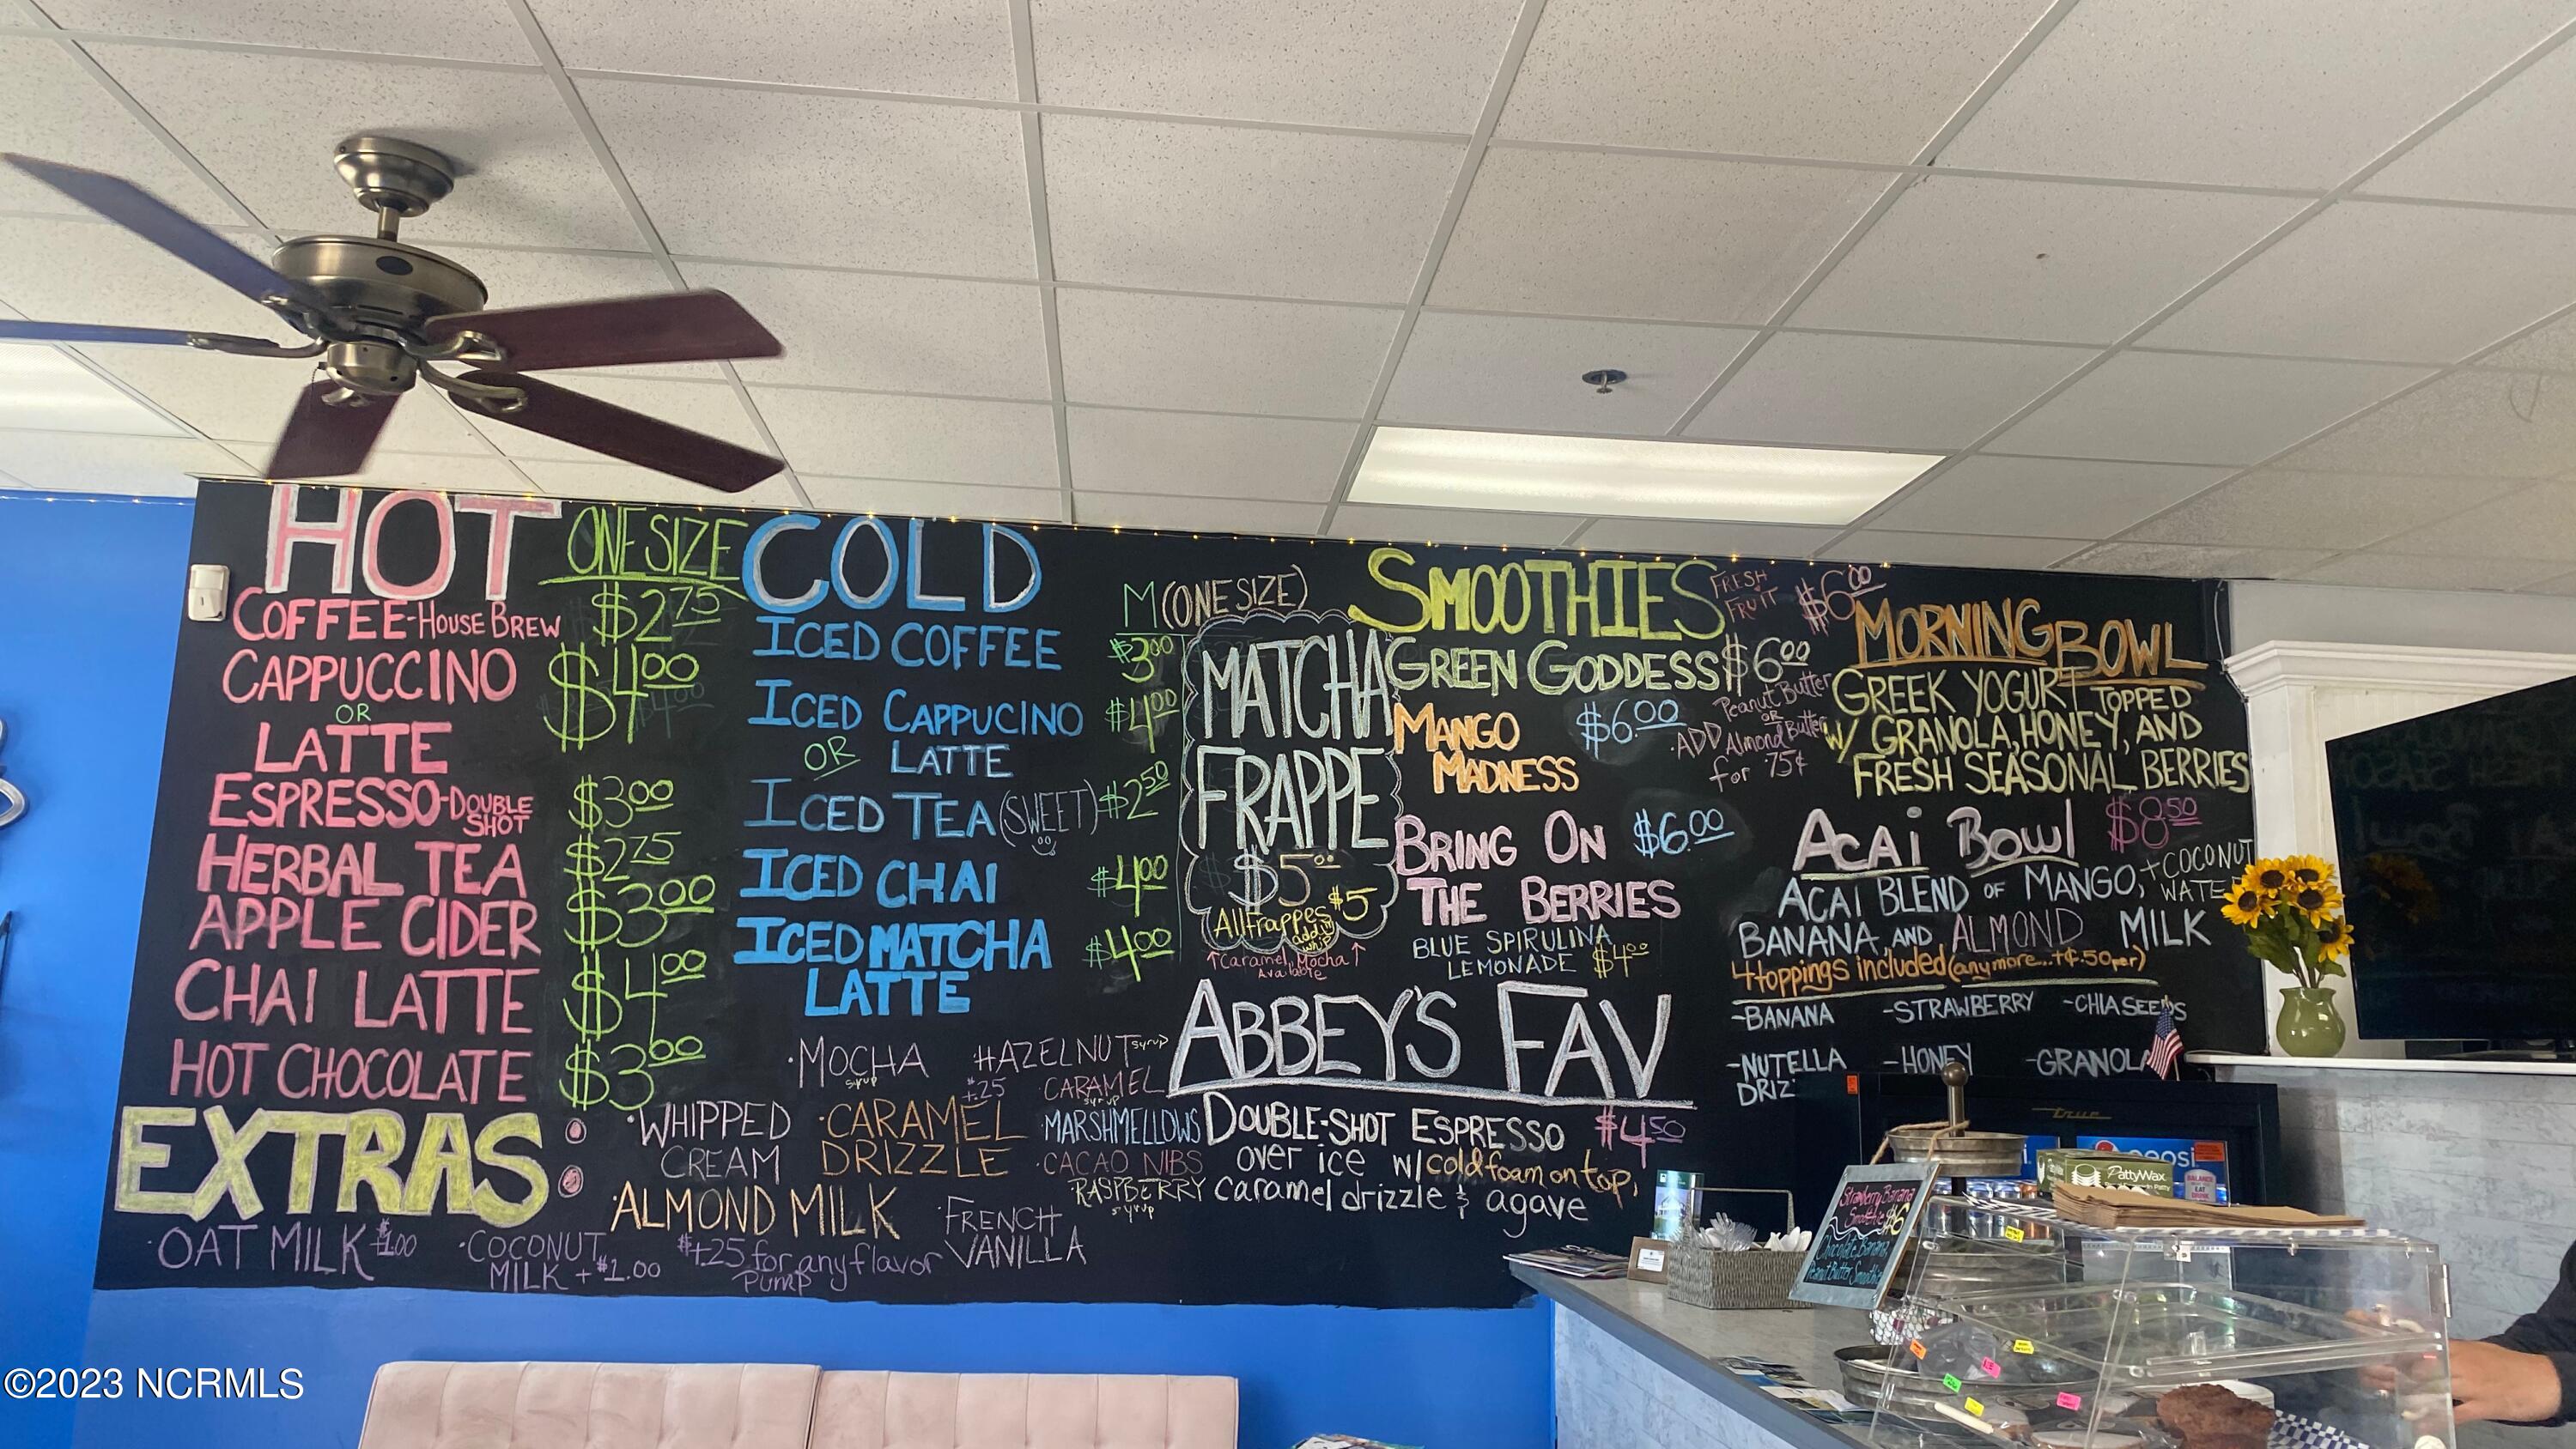 HOT ONE SIZE
COFFEE-HOUSE BREW $2.75
CAPPUCCINO $4.00
OR
LATTE
ESPRESSO-DOUBLE SHOT $3.00
HERBAL TEA $2.75
APPLE CIDER $3.00
CHAI LATTE $4.00
HOT CHOCOLATE $3.00
COLD M (ONE SIZE)
ICED COFFEE $3.00
ICED CAPPUCINO $4.00
OR LATTE
ICED TEA (SWEET) $2.50
ICED CHAI $4.00
ICED MATCHA $4.00
LATTE
MATCHA
FRAPPE
$5.00
All frappes $5
add in
whip
Caramel, Mocha
Available
SMOOTHIES FRESH FRUIT $6.00
GREEN GODDESS $6.00
MANGO $6.00
MADNESS
·ADD Peanut Butter
OR
Almond Butter
for 75¢
BRING ON $6.00
THE BERRIES
BLUE SPIRULINA
LEMONADE $4.00
MORNING BOWL
GREEK YOGURT TOPPED
W/ GRANOLA, HONEY, AND
FRESH SEASONAL BERRIES
ACAI BOWL $8.50
ACAI BLEND OF MANGO, + COCONUT
BANANA AND ALMOND MILK
4 toppings included
-BANANA -STRAWBERRY -CHIA SEEDS
-NUTELLA -HONEY -GRANOLA
ABBEY'S FAV
DOUBLE-SHOT ESPRESSO $4.50
over ice w/ cold foam on top,
caramel drizzle & agave
EXTRAS:
·MOCHA syrup HAZELNUT syrup
+.25 ·CARAMEL syrup
·WHIPPED CREAM ·CARAMEL DRIZZLE ·MARSHMELLOWS
·CACAO NIBS
·RASPBERRY syrup
·ALMOND MILK ·FRENCH VANILLA
·OAT MILK $1.00 ·COCONUT MILK +$1.00 $+.25 for any flavor Pump
true
pepsi
PattyWax
Strawberry Banana
Smoothie $6
Chocolate, Banana,
Peanut Butter Smoothie
©2023 NCRMLS